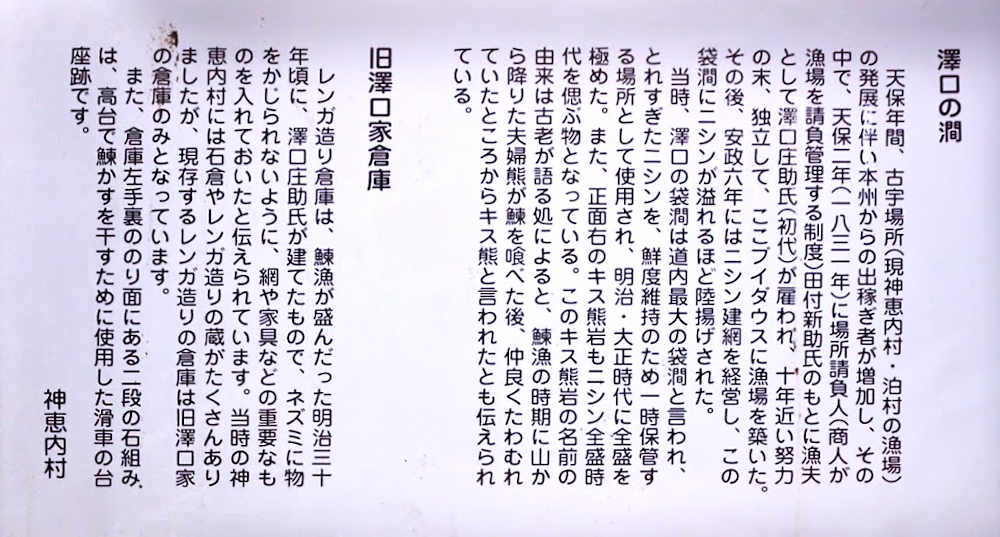 澤口の澗
天保年間、古宇場所(現神恵内村・泊村の漁場)
の発展に伴い本州からの出稼ぎ者が増加し、その
中で、天保二年(一八三一年)に場所請負人(商人が
漁場を請負管理する制度)田付新助氏のもとに漁夫
として澤口庄助氏(初代)が雇われ、十年近い努力
の末、独立して、ここブイダウスに漁場を築いた。
その後、安政六年にはニシン建網を経営し、この
袋澗にニシンが溢れるほど陸揚げされた。
当時、澤口の袋澗は道内最大の袋澗と言われ、
とれすぎたニシンを、鮮度維持のため一時保管す
る場所として使用され、明治・大正時代に全盛を
極めた。また、正面右のキス熊岩もニシン全盛時
代を偲ぶ物となっている。このキス熊岩の名前の
由来は古老が語る処によると、鰊漁の時期に山か
ら降りた夫婦熊が鰊を喰べた後、仲良くたわむれ
ていたところからキス熊と言われたとも伝えられ
ている。
旧澤口家倉庫
レンガ造り倉庫は、鰊漁が盛んだった明治三十
年頃に、澤口庄助氏が建てたもので、ネズミに物
をかじられないように、網や家具などの重要なも
のを入れておいたと伝えられています。当時の神
恵内村には石倉やレンガ造りの蔵がたくさんあり
ましたが、現存するレンガ造りの倉庫は旧澤口家
の倉庫のみとなっています。
また、倉庫左手裏ののり面にある二段の石組み
は、高台で鰊かすを干すために使用した滑車の台
座跡です。
神恵内村